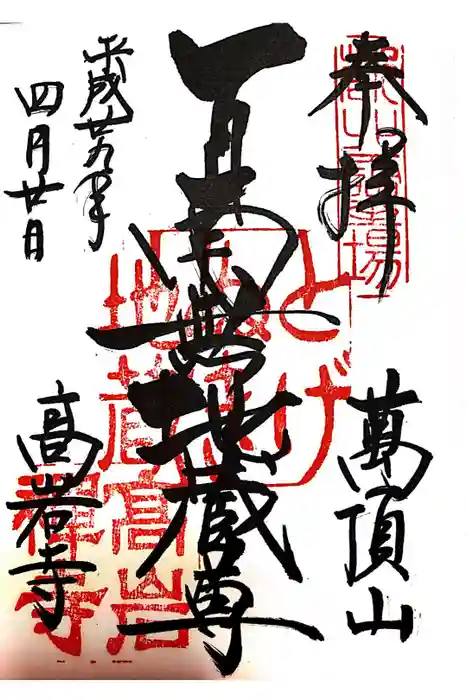 奉拝
萬頂山
南無地蔵尊
平成廿九年
四月廿日
高岩寺
霊場
とげ
ぬき
地蔵
高岩
禅寺